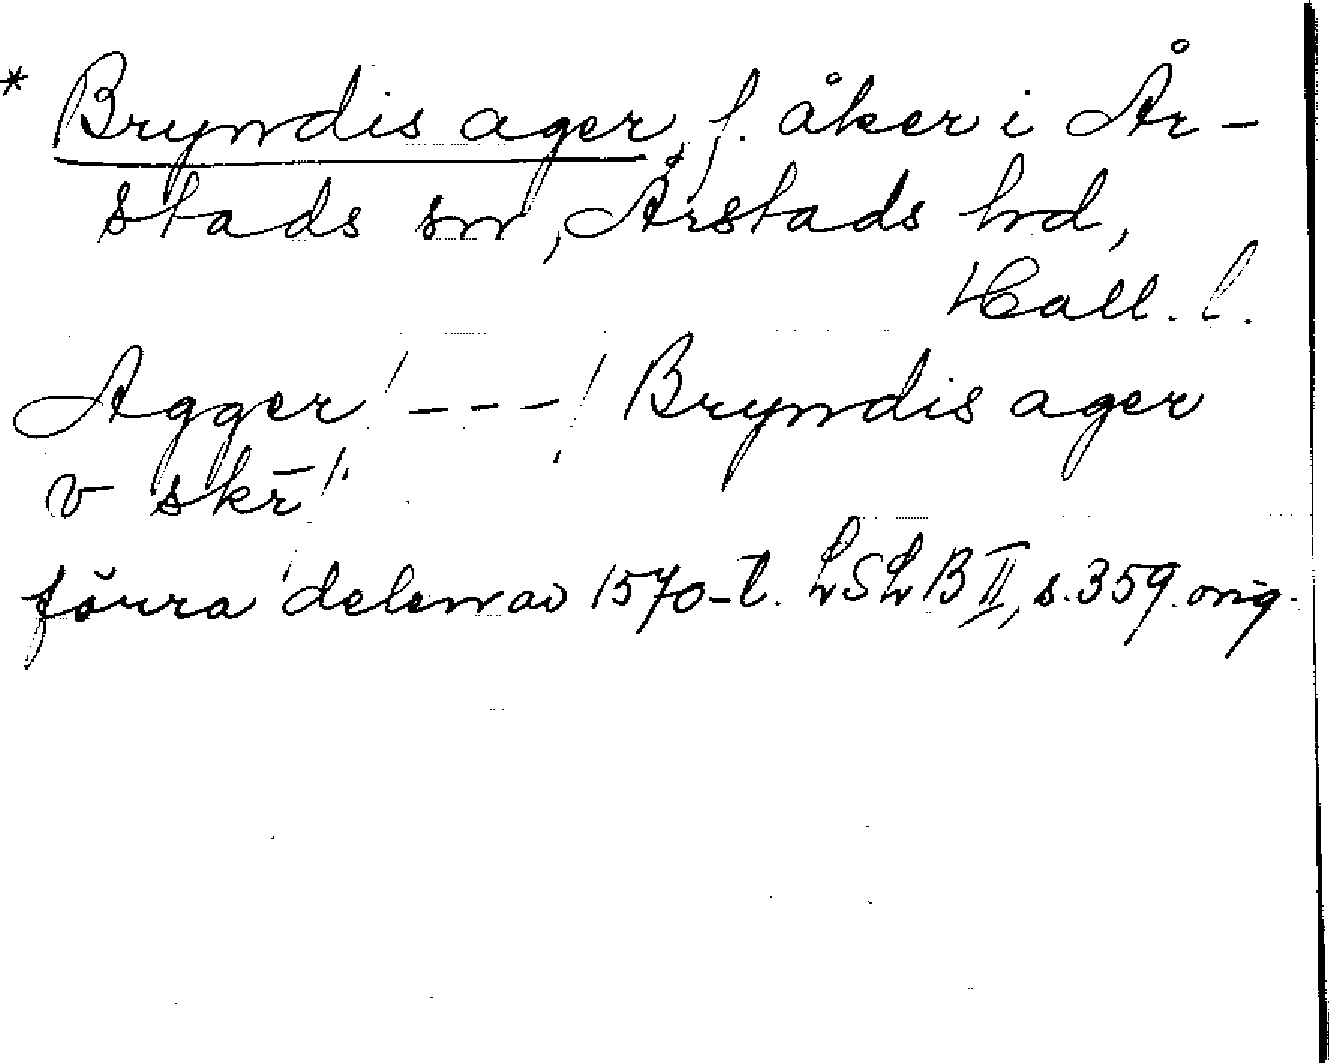 * Bryndis ager, f. åker i År-
stads sn, Årstads hd,
Hall. l.
Agger / - - - / Bryndis ager
v skr̄
förra delen av 1570-t. LSLB II, s. 359. orig.